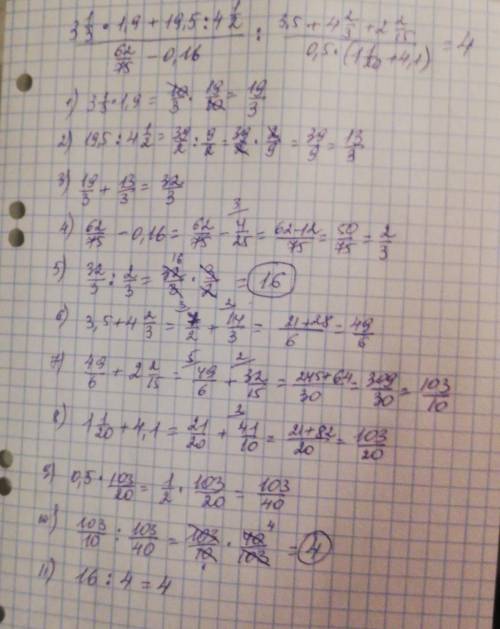 (3 1/3 · 1,9 + 19,5 : 4 1/2) / (62/75 − 0,16) : (3,5 + 4 2/3 + 2 2/15) / (0,5 · (1 1/20 + 4,1)) = 4
1) 3 1/3 · 1,9 = 10/3 · 19/10 = 19/3
2) 19,5 : 4 1/2 = 39/2 : 9/2 = 39/2 · 2/9 = 39/9 = 13/3
3) 19/3 + 13/3 = 32/3
4) 62/75 − 0,16 = 62/75 − 4/25 = (62−12)/75 = 50/75 = 2/3
5) 32/3 : 2/3 = 32/3 · 3/2 = 16
6) 3,5 + 4 2/3 = 7/2 + 14/3 = (21+28)/6 = 49/6
7) 49/6 + 2 2/15 = 49/6 + 32/15 = (245+64)/30 = 309/30 = 103/10
8) 1 1/20 + 4,1 = 21/20 + 41/10 = (21+82)/20 = 103/20
9) 0,5 · 103/20 = 1/2 · 103/20 = 103/40
10) 103/10 : 103/40 = 103/10 · 40/103 = 4
11) 16 : 4 = 4